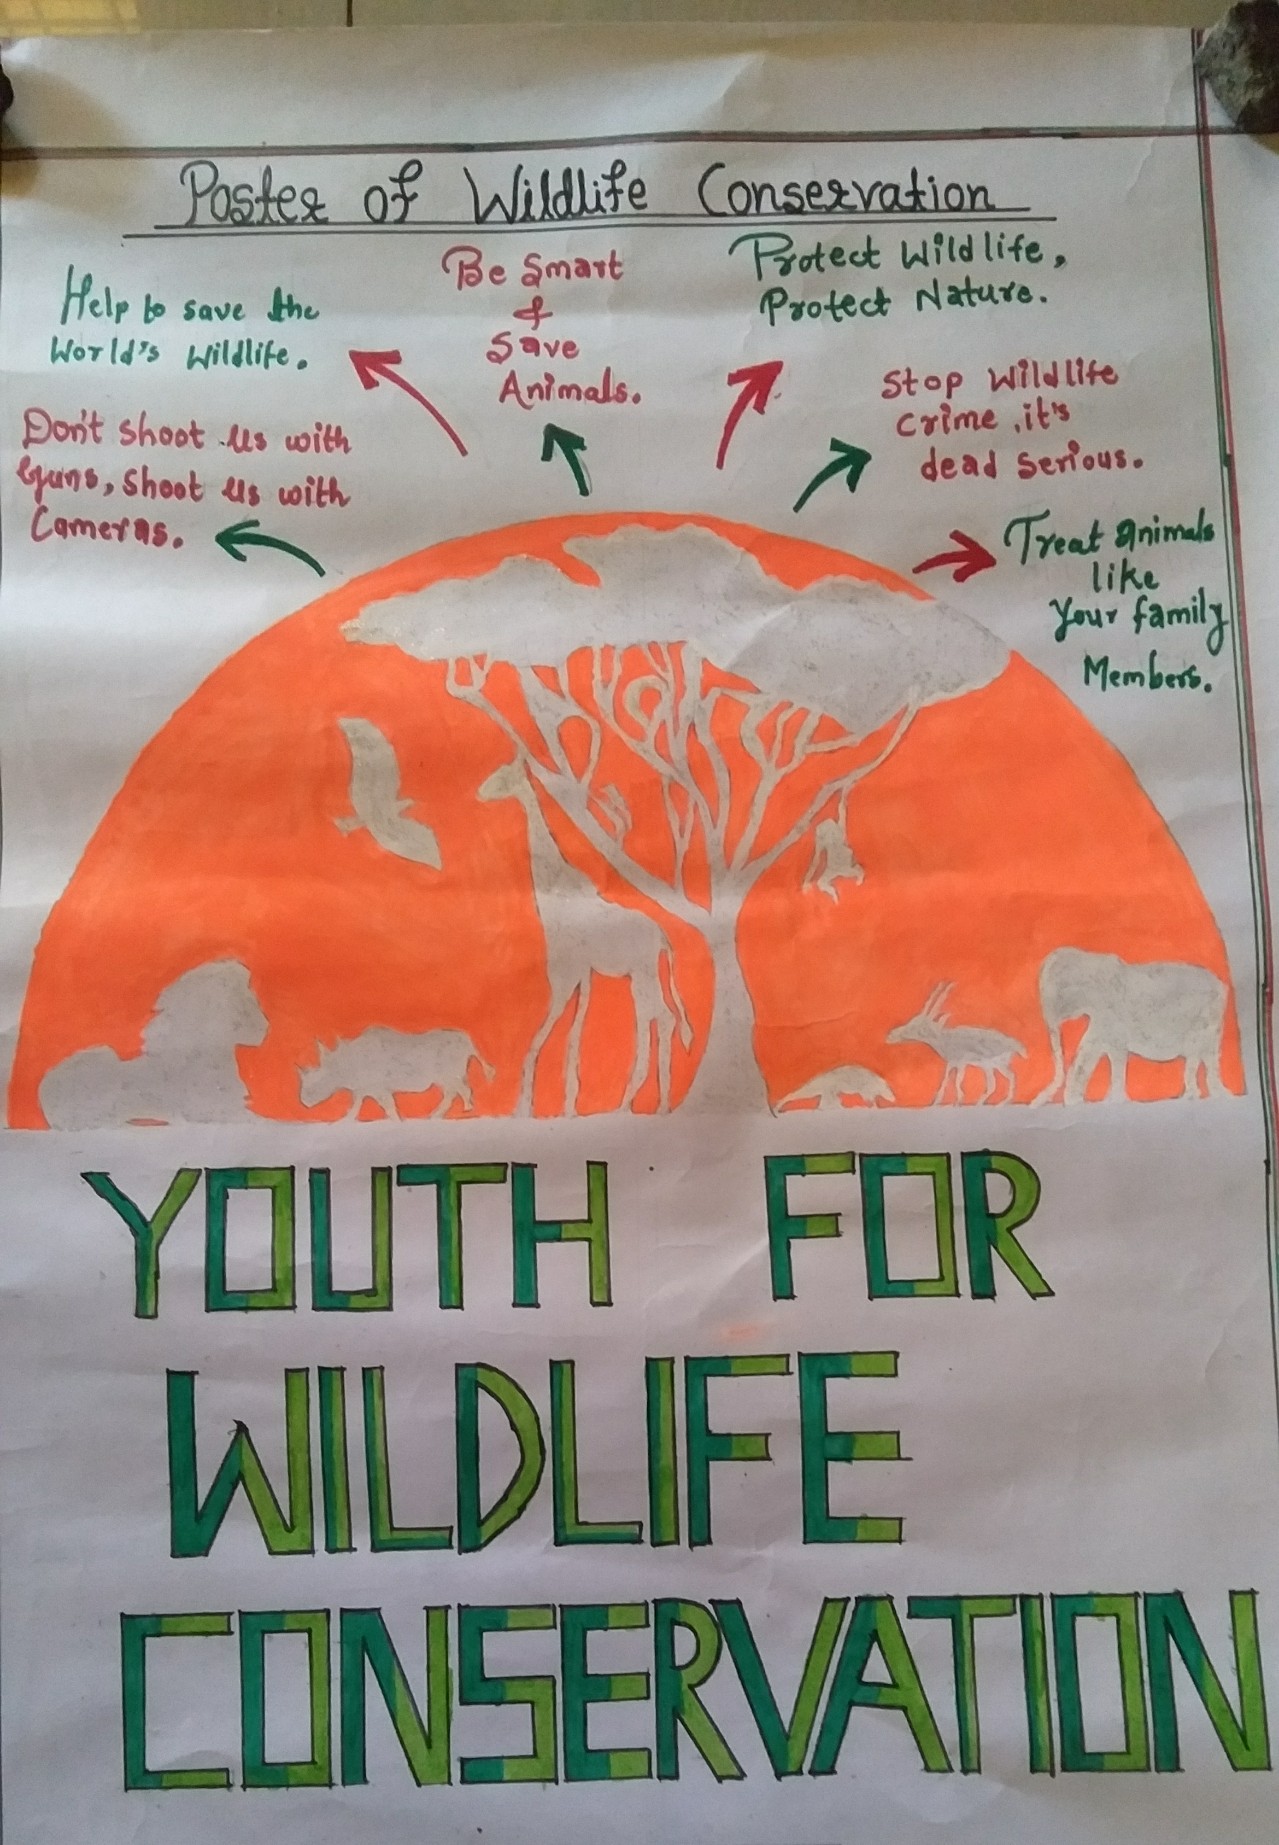 Poster of Wildlife Conservation
Help to save the
World's Wildlife.
Be Smart
&
Save
Animals.
Protect Wildlife,
Protect Nature.
Don't shoot us with
Guns, shoot us with
Cameras.
Stop Wildlife
crime, it's
dead serious.
Treat animals
like
Your family
Members.
YOUTH FOR
WILDLIFE
CONSERVATION